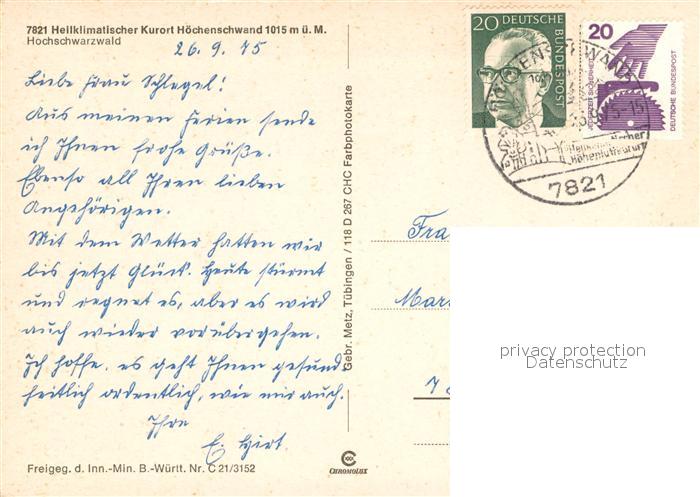 7821 Heilklimatischer Kurort Höchenschwand 1015 m ü. M.
Hochschwarzwald
26. 9. 75
Liebe Frau Schlegel!
Aus meinen Ferien sende
ich Ihnen frohe Grüße.
Ebenso all Ihren lieben
Angehörigen.
Mit dem Wetter hatten wir
bis jetzt Glück. Heute stürmt
und regnet es, aber es wird
auch wieder vorübergehen.
Ich hoffe, es geht Ihnen gesund-
heitlich ordentlich, wie mir auch.
Ihre
E. Hirt.
Freigeg. d. Inn.-Min. B.-Württ. Nr. C 21/3152
CHROMOLUX
Gebr. Metz, Tübingen / 118 D 267 CHC Farbphotokarte
20 DEUTSCHE
BUNDESPOST
20
JEDERZEIT SICHERHEIT
DEUTSCHE BUNDESPOST
7821
Fra
Mar
privacy protection
Datenschutz